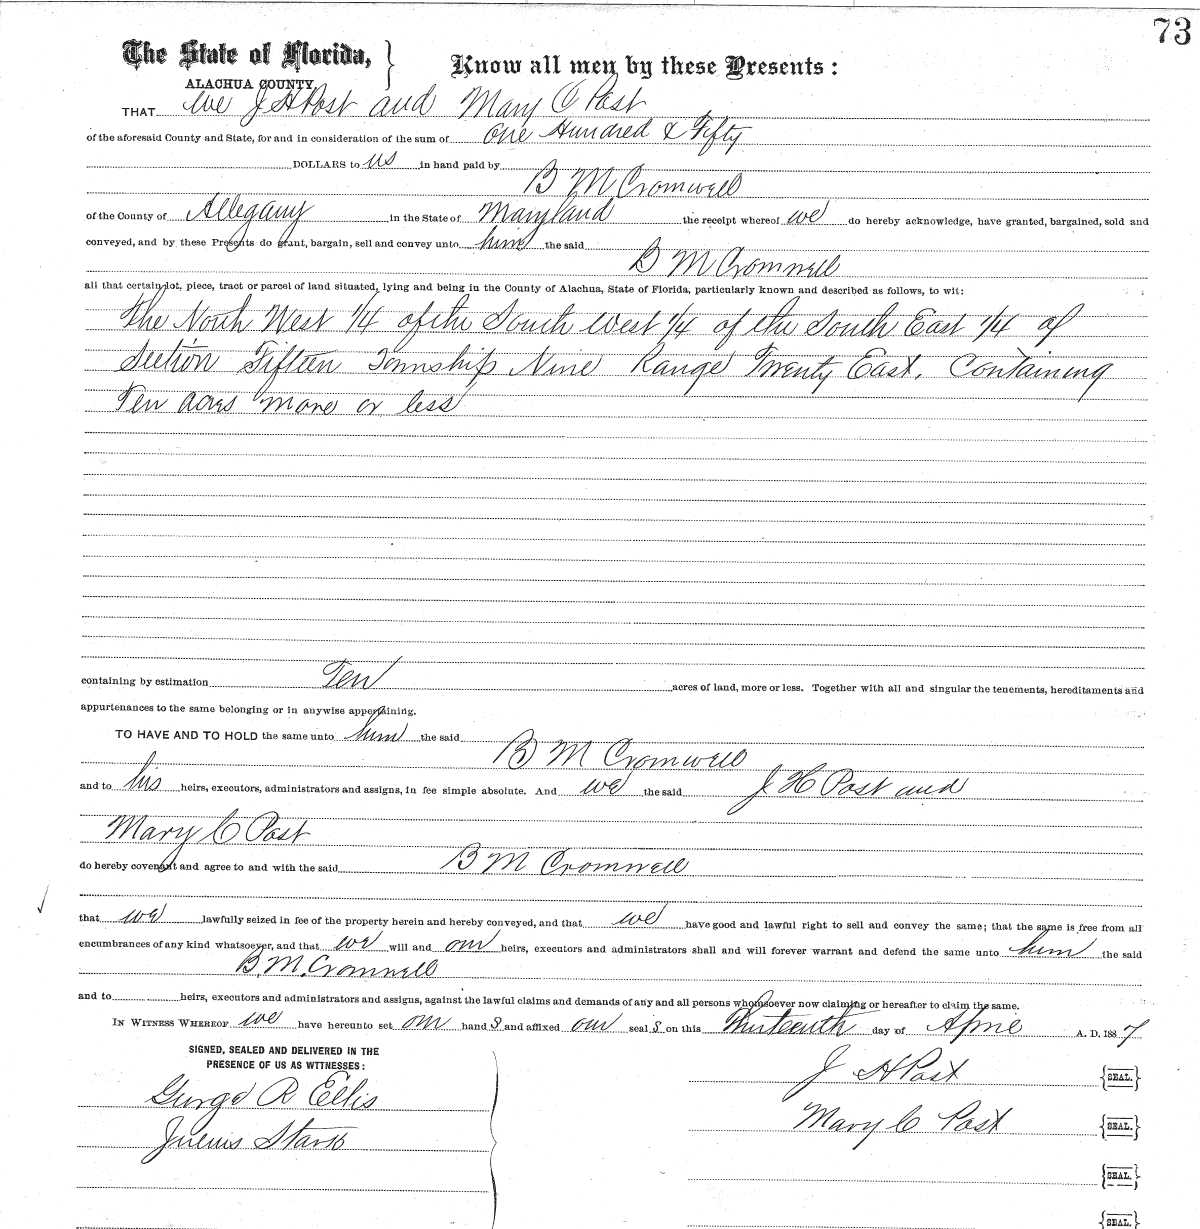 73
The State of Florida, } Know all men by these Presents:
ALACHUA COUNTY.
THAT we J H Post and Mary C Post
of the aforesaid County and State, for and in consideration of the sum of one Hundred & Fifty
DOLLARS to us in hand paid by
B M Cromwell
of the County of Allegany in the State of Maryland the receipt whereof we do hereby acknowledge, have granted, bargained, sold and
conveyed, and by these Presents do grant, bargain, sell and convey unto him the said
B M Cromwell
all that certain lot, piece, tract or parcel of land situated, lying and being in the County of Alachua, State of Florida, particularly known and described as follows, to wit:
The North West 1/4 of the South West 1/4 of the South East 1/4 of
Section Fifteen Township Nine Range Twenty East, Containing
Ten acres more or less
containing by estimation Ten acres of land, more or less. Together with all and singular the tenements, hereditaments and
appurtenances to the same belonging or in anywise appertaining.
TO HAVE AND TO HOLD the same unto him the said
B M Cromwell
and to his heirs, executors, administrators and assigns, in fee simple absolute. And we the said J H Post and
Mary C Post
do hereby covenant and agree to and with the said B M Cromwell
that we lawfully seized in fee of the property herein and hereby conveyed, and that we have good and lawful right to sell and convey the same; that the same is free from all
encumbrances of any kind whatsoever, and that we will and our heirs, executors and administrators shall and will forever warrant and defend the same unto him the said
B. M. Cromwell
and to heirs, executors and administrators and assigns, against the lawful claims and demands of any and all persons whomsoever now claiming or hereafter to claim the same.
IN WITNESS WHEREOF we have hereunto set our hand s and affixed our seal s on this Thirteenth day of April A. D. 188 7
SIGNED, SEALED AND DELIVERED IN THE
PRESENCE OF US AS WITNESSES:
J H Post {SEAL.}
George R Ellis
Mary C Post {SEAL.}
Julius Stark
{SEAL.}
{SEAL.}